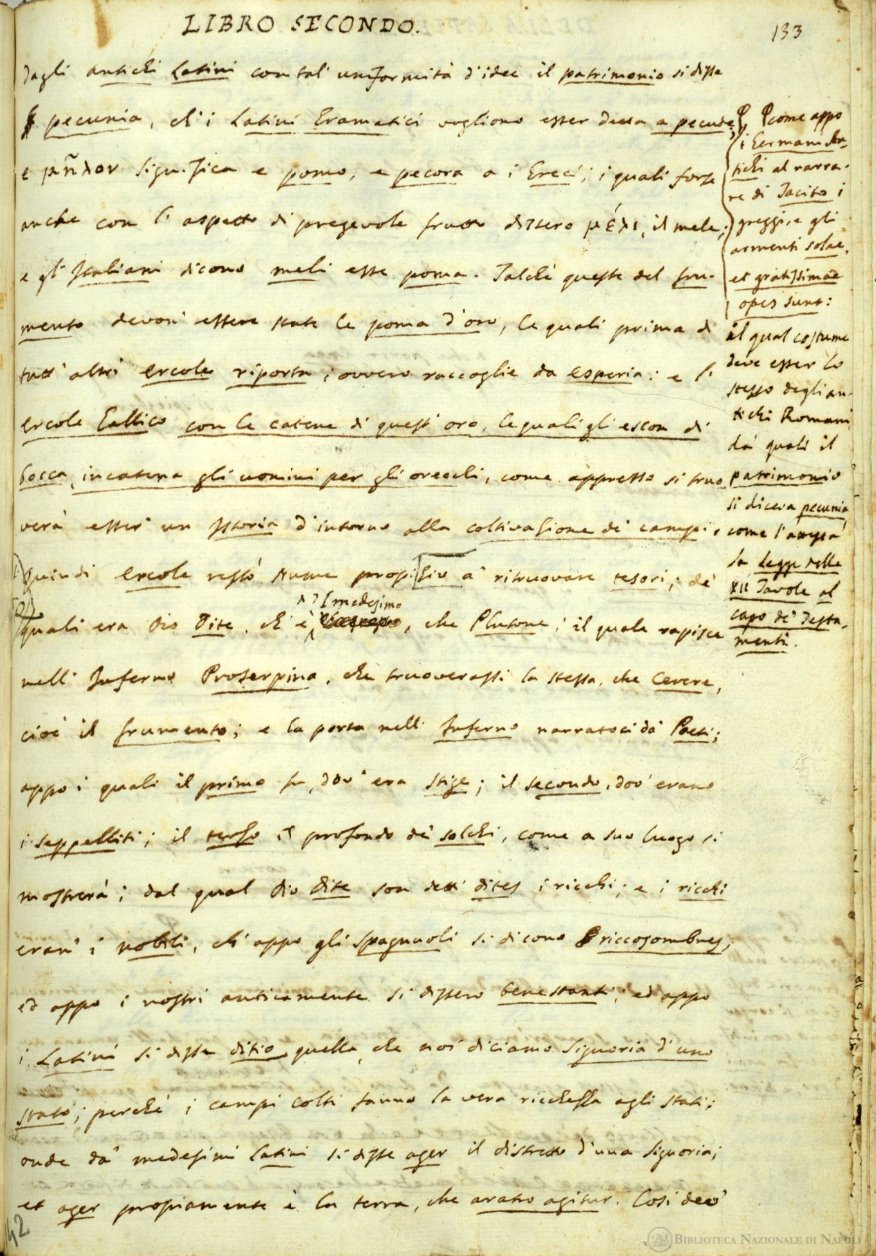 LIBRO SECONDO.
133
dagli antichi Latini con tal' uniformità d'idee il patrimonio si disse
pecunia, ch' i Latini Gramatici vogliono esser detta a pecude;
e μῆλον significa e pomo, e pecora a i Greci; i quali forse
anche con l' aspetto di pregevole frutto dissero μέλι, il mele;
e gl' Italiani dicono meli esse poma. Talchè queste del fru-
mento devon' essere state le poma d'oro, le quali prima di
tutt' altri Ercole riporta, ovvero raccoglie da Esperia: e l'
Ercole Gallico con le catene di quest' oro, le quali gli escon di
bocca, incatena gli uomini per gli orecchi, come appresso si truo-
verà esser' un' istoria d'intorno alla coltivazione de' campi.
Quindi Ercole restò Nume propizio a' ritruovare tesori; de'
quali era Dio Dite, ch' è 'l medesimo, che Plutone; il quale rapisce
nell' Inferno Proserpina, che truoverassi la stessa, che Cerere,
cioè il frumento; e la porta nell' Inferno narratoci da' Poeti;
appo i quali il primo fu, dov' era Stige; il secondo, dov' erano
i seppelliti; il terzo il profondo de' solchi, come a suo luogo si
mostrerà; dal qual Dio Dite son detti dites i ricchi; e i ricchi
eran' i nobili, ch' appo gli Spagnuoli si dicono riccosombres,
ed appo i nostri anticamente si dissero benestanti; ed appo
i Latini si disse ditio quella, che noi diciamo Signoria d'uno
stato; perchè i campi colti fanno la vera ricchezza agli stati;
onde da' medesimi Latini si disse ager il distretto d'una Signoria;
et ager propiamente è la terra, che aratro agitur. Così dev'
come appo
i Germani An-
tichi al narra-
re di Tacito i
greggi, e gli
armenti solae,
et gratissimae
opes sunt:
il qual costume
deve esser lo
stesso degli an-
tichi Romani
da' quali il
patrimonio
si diceva pecunia
come l'appruova
la Legge delle
XII Tavole al
capo de' Testa-
menti.
42
BIBLIOTECA NAZIONALE DI NAPOLI